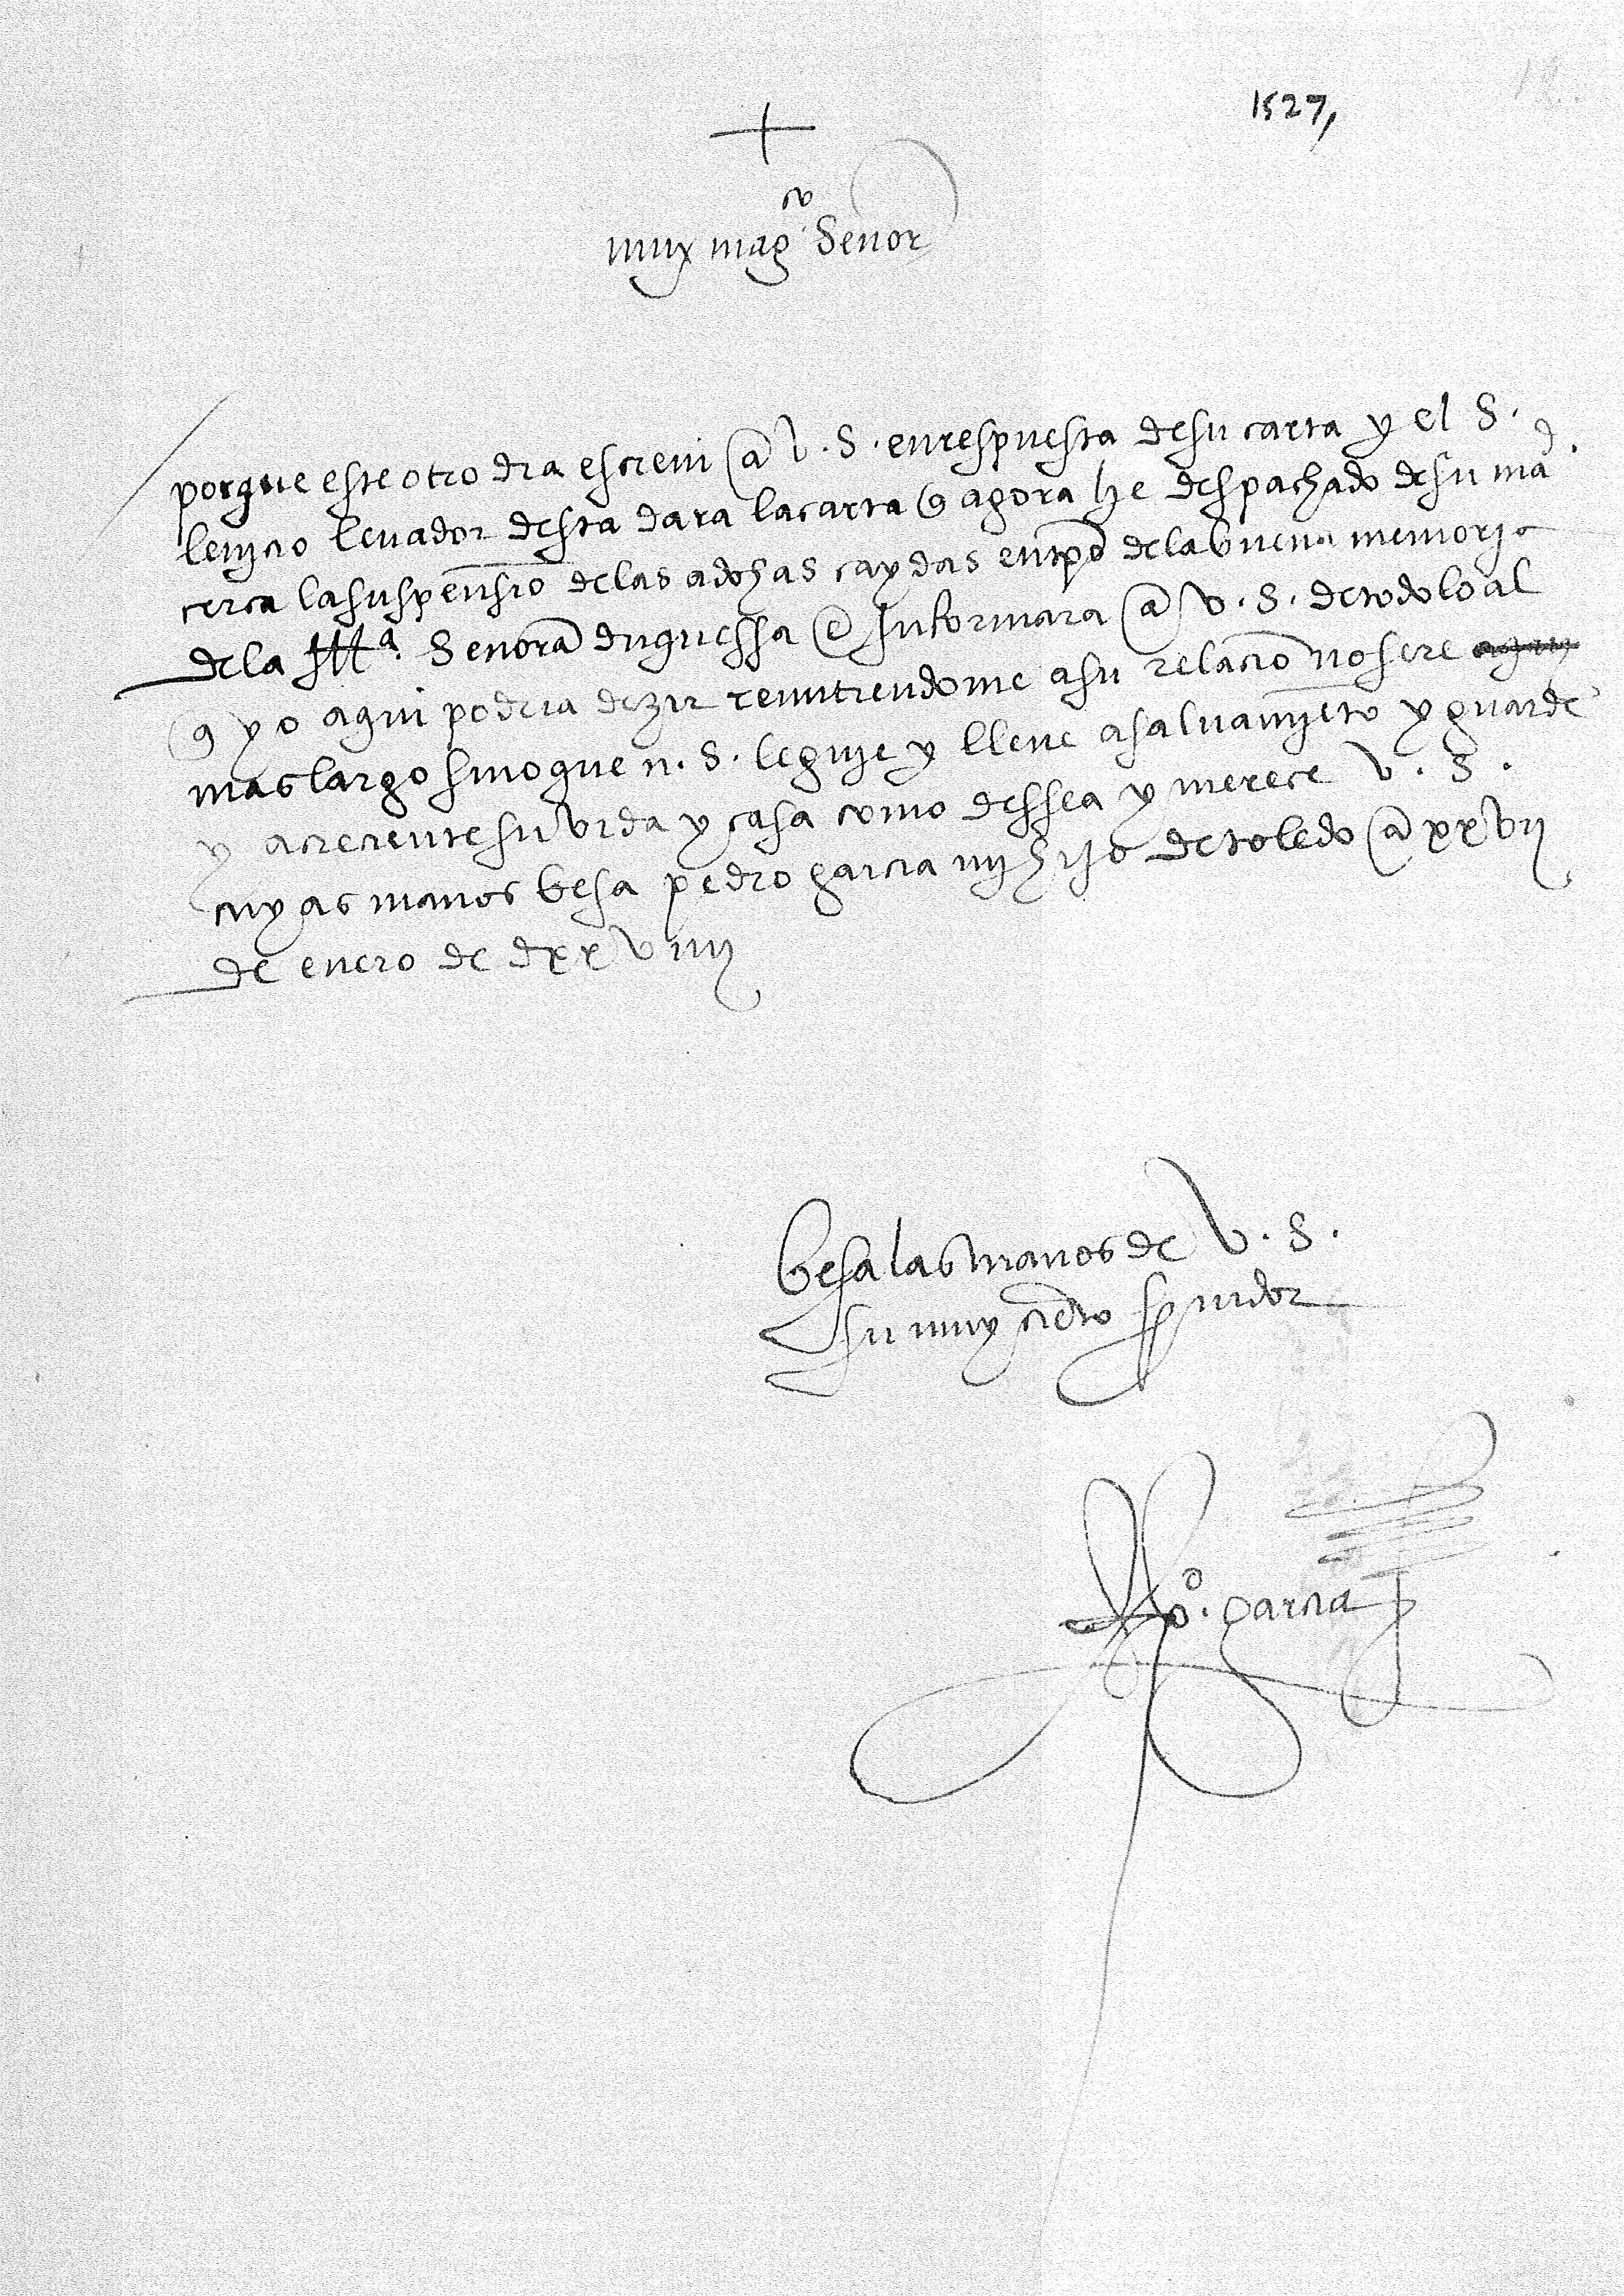 1527,
muy mag^co Señor
porque este otro dia escreui a v. S. en respuesta de su carta y el S.
leuador desta dara la carta q agora he despachado de su ma^d.
cerca la suspensio de las caydas en tpo de la buena memoria
de la Ill^a. Señora duquessa e Informara a v. S. de todo lo al
q yo aqui podria dezir remitiendome a su relacio no sere
mas largo sino que n. S. le guie y lleue a saluamyeto y guarde
y acreciente su vida y casa como dessea y merece v. S.
cuyas manos besa pedro garcia my hijo de toledo a xxvij
de enero de dxxviiij
besa las manos de v. S.
su muy cierto seruidor
p^o. garcia